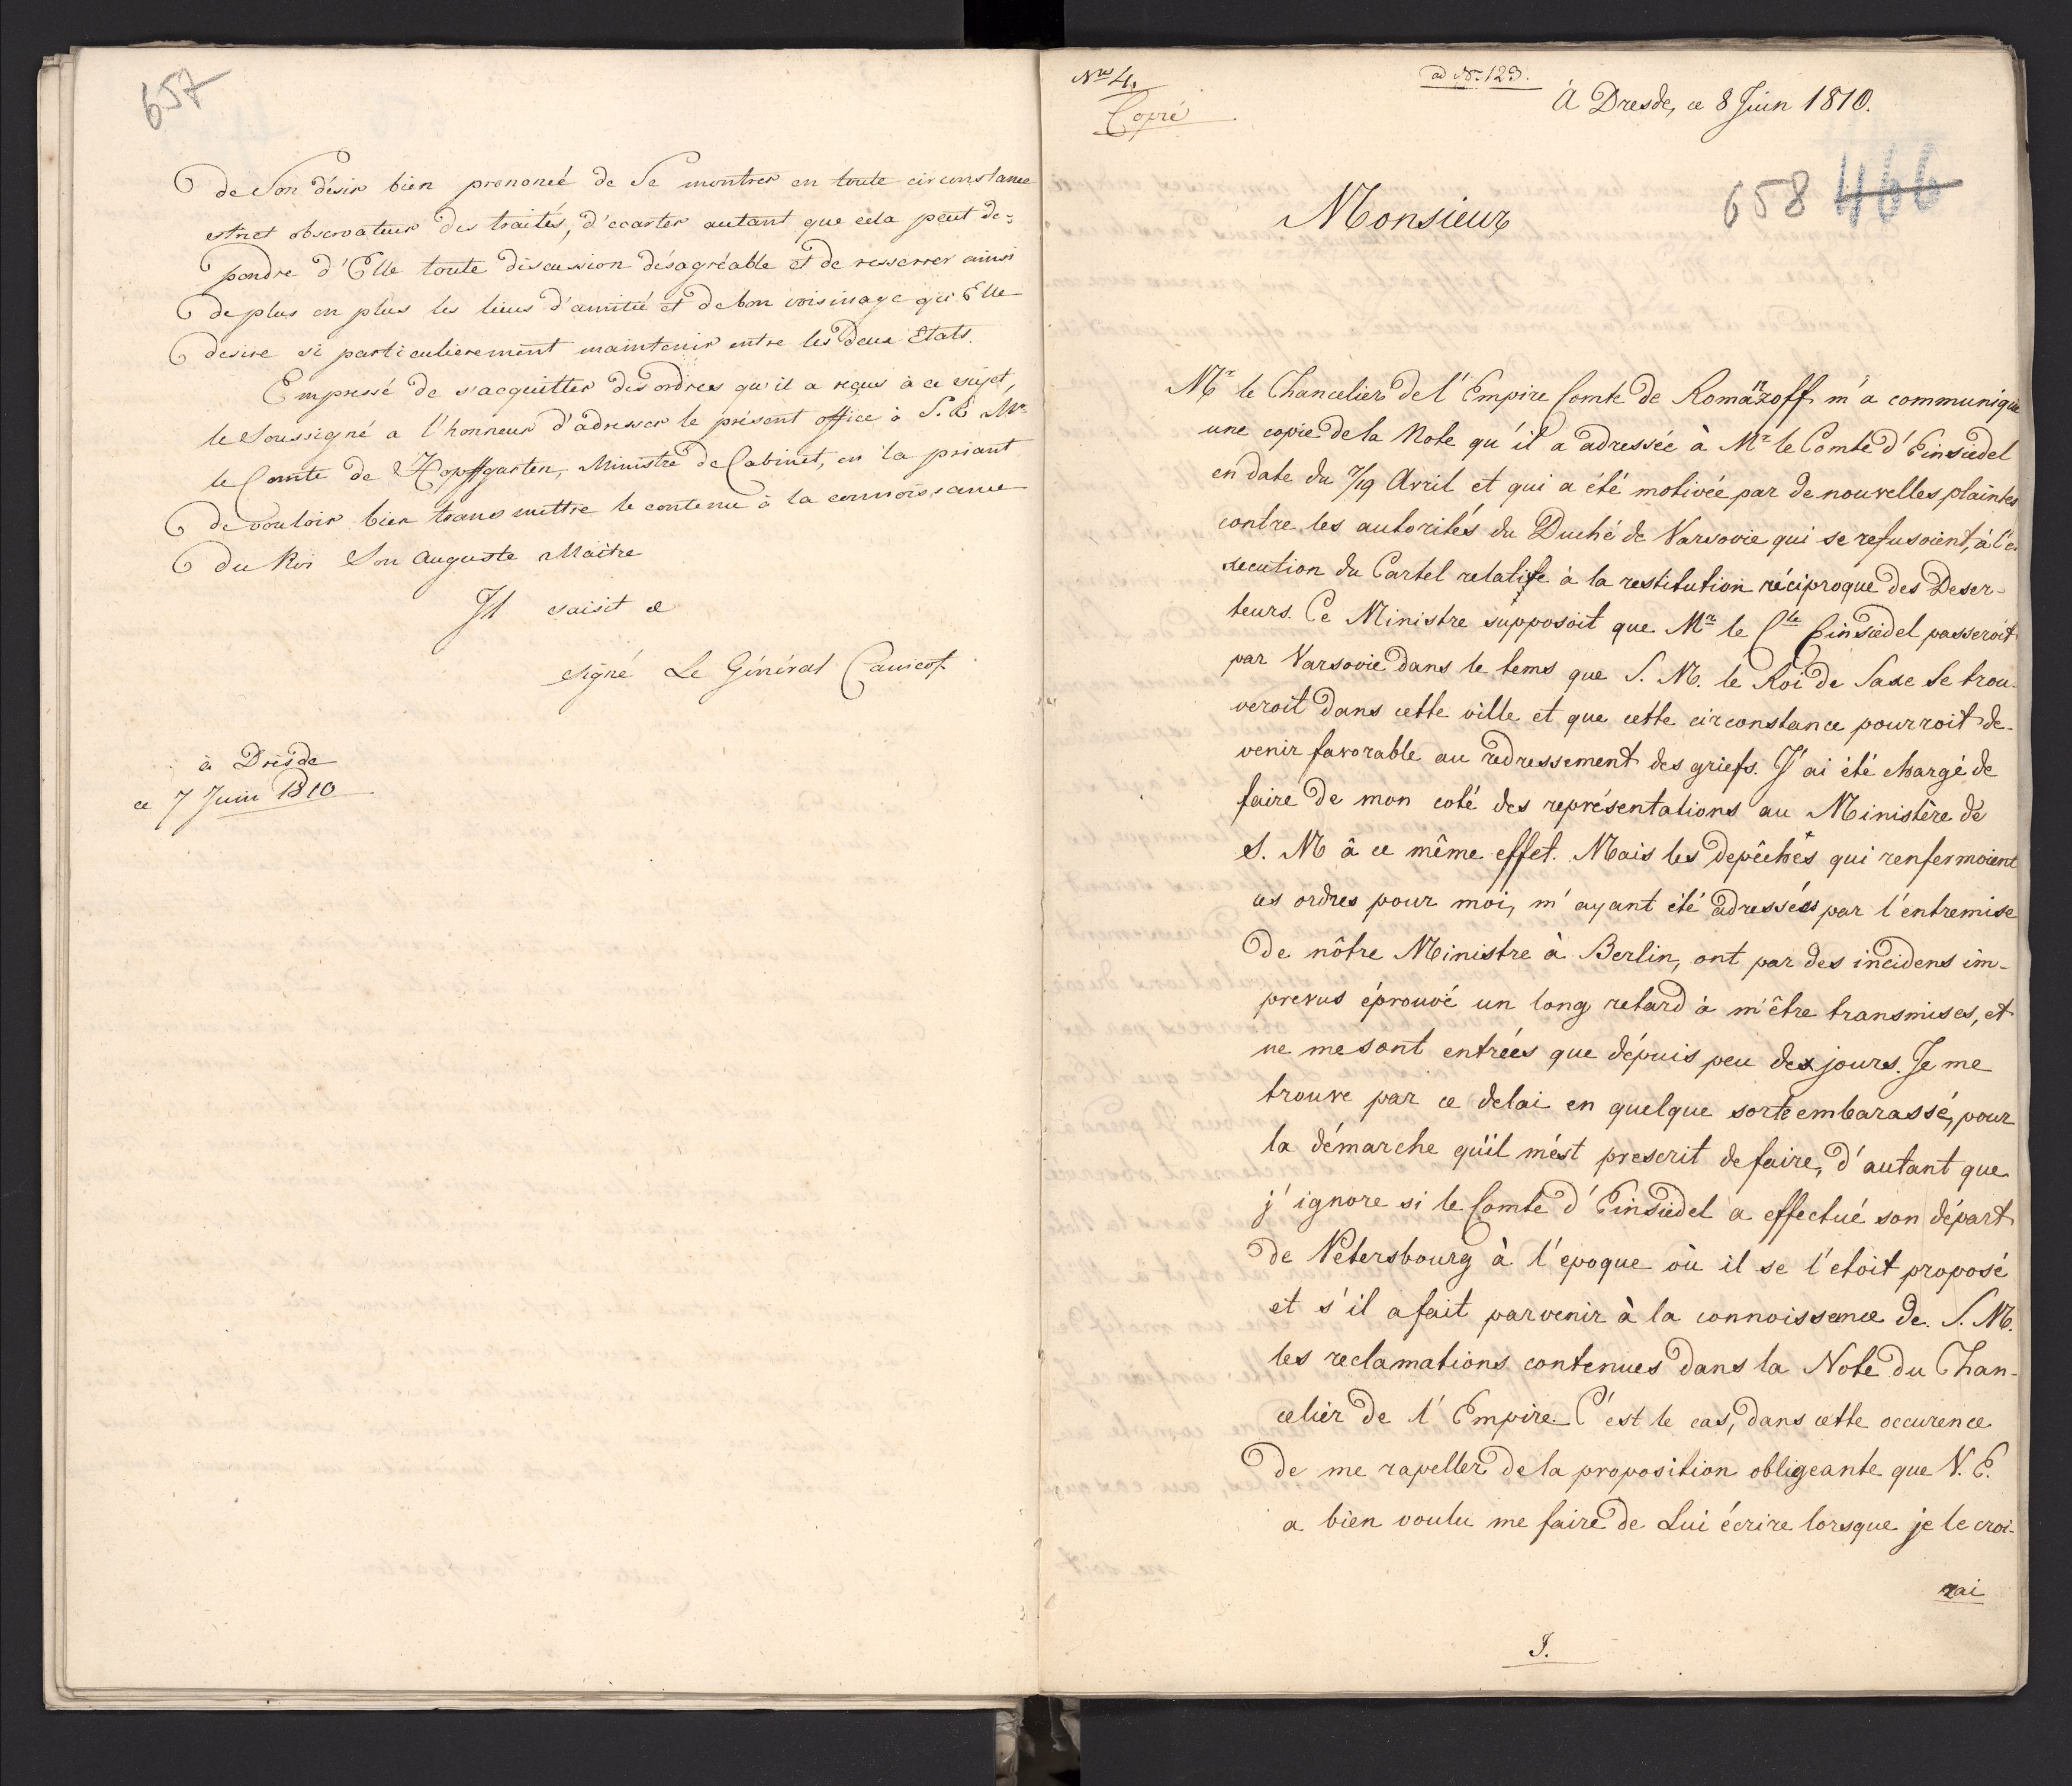 657
de Son désir bien prononcé de Se montrer en toute circonstance
strict observateur des traités, d'ecarter autant que cela peut de=
pendre d'Elle toute discussion désagréable et de resserrer ainsi
de plus en plus les liens d'amitié et de bon voisinage qu'Elle
desire si particulierement maintenir entre les deux Etats.
Empressé de s'acquitter des ordres qu'il a reçus à ce sujet,
le Soussigné a l'honneur d'adresser le présent office à S. E. Mr
le Comte de Hopffgarten, Ministre de Cabinet, en la priant
de vouloir bien transmettre le contenu à la connoissance
du Roi Son Auguste Maître
Il saisit &
signé Le Général Canicof
à Dresde
ce 7 Juin 1810
Nro 4.
Copie
ad No. 123.
À Dresde, ce 8 Juin 1810.
658 466
Monsieur
Mr le Chancelier de l'Empire Comte de Romanzoff m'a communiqué
une copie de la Note qu'il a adressée à Mr le Comte d'Einsiedel
en date du 7/19 Avril et qui a été motivée par de nouvelles plaintes
contre les autorités du Duché de Varsovie qui se refusoient, à l'e-
xecution du Cartel relatife à la restitution réciproque des Deser-
teurs. Ce Ministre supposoit que Mr le Cte Einsiedel passeroit
par Varsovie dans le tems que S. M. le Roi de Saxe Se trou-
veroit dans cette ville et que cette circonstance pourroit de-
venir favorable au redressement des griefs. J'ai été chargé de
faire de mon coté des représentations au Ministère de
S. M à ce même effet. Mais les depêches qui renfermoient
ces ordres pour moi, m'ayant été adressées par l'entremise
de nôtre Ministre à Berlin, ont par des incidens im-
prevus éprouvé un long retard à m'être transmises, et
ne me sont entrées que dépuis peu de jours. Je me
trouve par ce delai en quelque sorte embarassé, pour
la démarche qu'il m'ést prescrit de faire, d'autant que
j'ignore si le Comte d'Einsiedel a effectué son départ
de Petersbourg à l'epoque où il se l'etoit proposé
et s'il a fait parvenir à la connoissance de S. M.
les reclamations contenues dans la Note du Chan-
celier de l'Empire. C'est le cas, dans cette occurence
de me rapeller de la proposition obligeante que V. E.
a bien voulu me faire de Lui écrire lorsque je le croi-
rai
J.